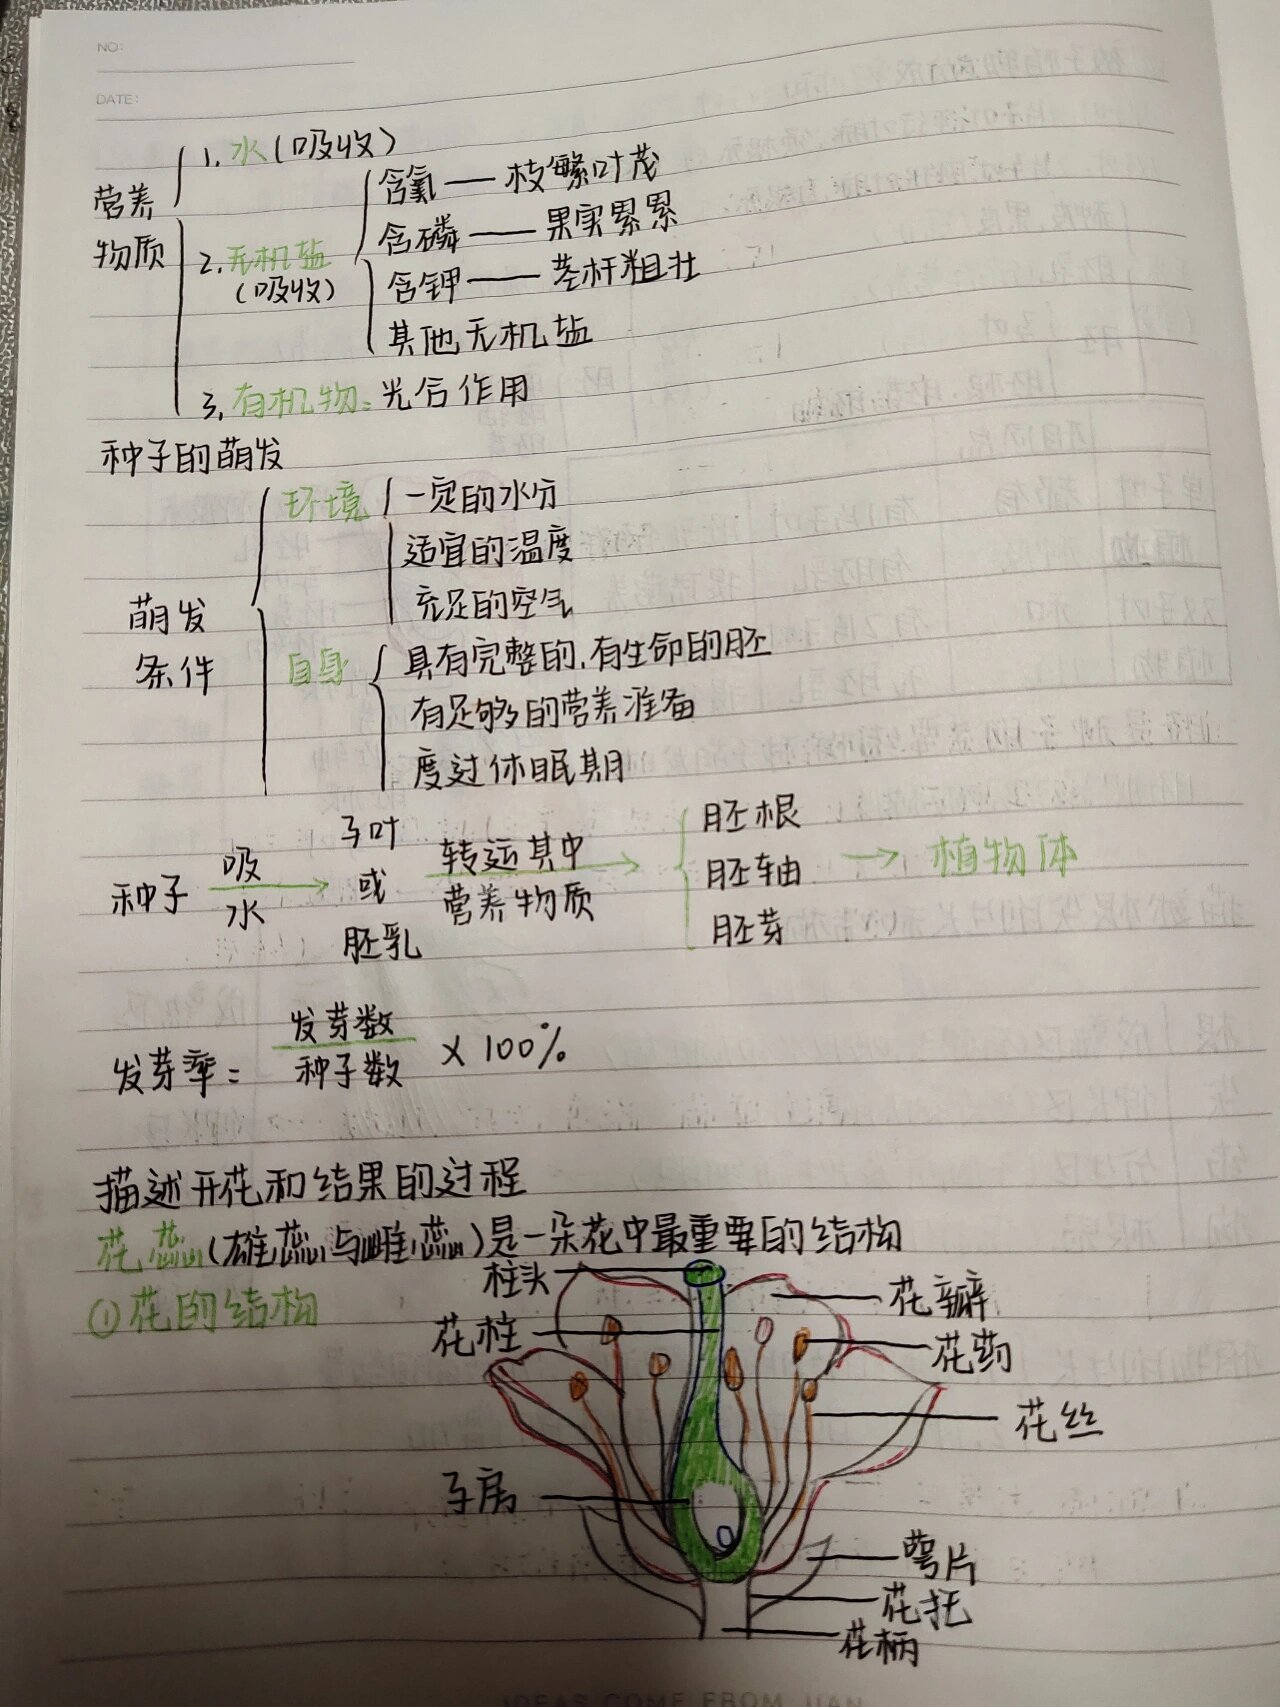 NO:
DATE:
营养物质
1. 水(吸收)
2. 无机盐
(吸收)
含氮——枝繁叶茂
含磷——果实累累
含钾——茎杆粗壮
其他无机盐
3. 有机物:光合作用
种子的萌发
萌发条件
环境
一定的水分
适宜的温度
充足的空气
自身
具有完整的,有生命的胚
有足够的营养准备
度过休眠期
种子 吸水→ 子叶或胚乳 转运其中营养物质→ 胚根 胚轴 胚芽 → 植物体
发芽率= 发芽数/种子数 ×100%
描述开花和结果的过程
花蕊(雄蕊与雌蕊)是一朵花中最重要的结构
①花的结构
柱头
花柱
子房
花瓣
花药
花丝
萼片
花托
花柄
IDEAS COME FROM